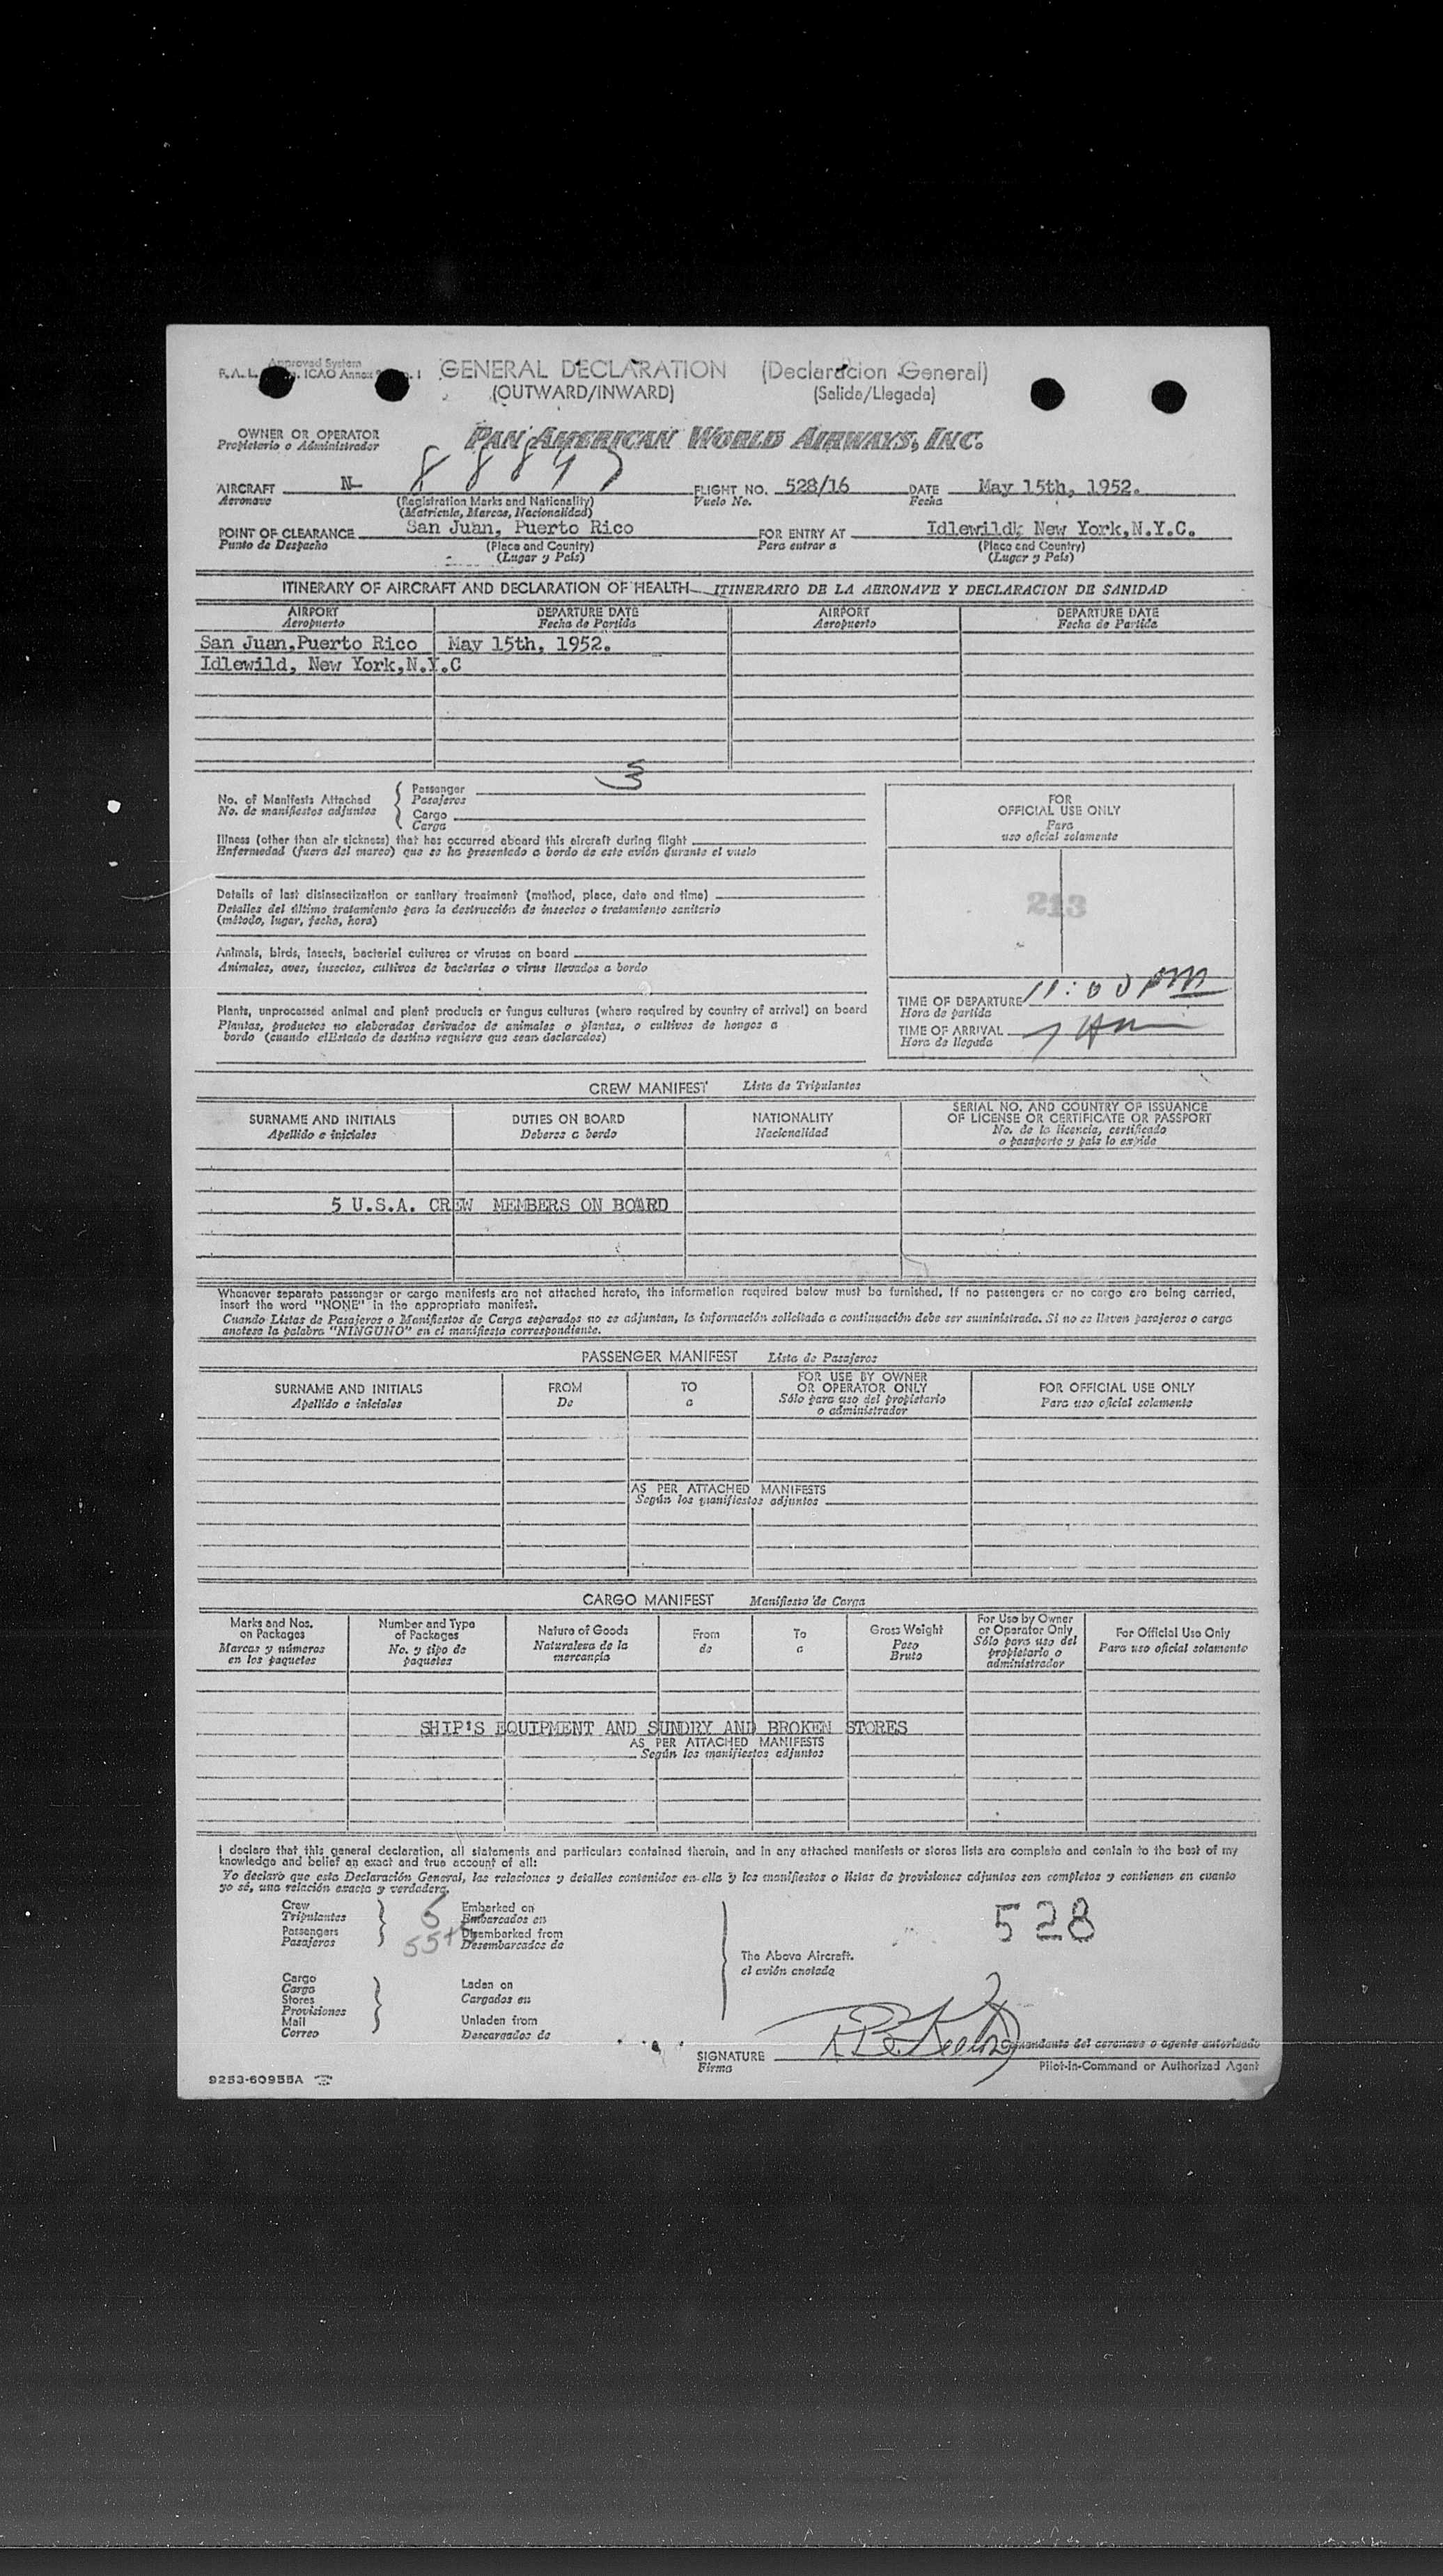 Approved System
GENERAL DECLARATION (Declaracion General)
(OUTWARD/INWARD) (Salida/Llegada)
OWNER OR OPERATOR
Propietario o Administrador
PAN AMERICAN WORLD AIRWAYS, INC.
AIRCRAFT N- FLIGHT NO. 528/16 DATE May 15th, 1952.
Aeronave (Registration Marks and Nationality) Vuelo No. Fecha
(Matricula, Marcas, Nacionalidad)
POINT OF CLEARANCE San Juan, Puerto Rico FOR ENTRY AT Idlewild, New York,N.Y.C.
Punto de Despacho (Place and Country) Para entrar a (Place and Country)
(Lugar y País) (Lugar y País)
ITINERARY OF AIRCRAFT AND DECLARATION OF HEALTH— ITINERARIO DE LA AERONAVE Y DECLARACION DE SANIDAD
AIRPORT DEPARTURE DATE AIRPORT DEPARTURE DATE
Aeropuerto Fecha de Partida Aeropuerto Fecha de Partida
San Juan,Puerto Rico May 15th, 1952.
Idlewild, New York,N.Y.C
No. of Manifests Attached
No. de manifiestos adjuntos
Passenger 3
Pasajeros
Cargo
Carga
Illness (other than air sickness) that has occurred aboard this aircraft during flight
Enfermedad (fuera del mareo) que se ha presentado a bordo de este avión durante el vuelo
Details of last disinsectization or sanitary treatment (method, place, date and time)
Detalles del último tratamiento para la destrucción de insectos o tratamiento sanitario
(método, lugar, fecha, hora)
Animals, birds, insects, bacterial cultures or viruses on board
Animales, aves, insectos, cultivos de bacterias o virus llevados a bordo
Plants, unprocessed animal and plant products or fungus cultures (where required by country of arrival) on board
Plantas, productos no elaborados derivados de animales o plantas, o cultivos de hongos a
bordo (cuando elEstado de destino requiere que sean declarados)
FOR
OFFICIAL USE ONLY
Para
uso oficial solamente
213
TIME OF DEPARTURE 11:00 PM
Hora de partida
TIME OF ARRIVAL
Hora de llegada
CREW MANIFEST Lista de Tripulantes
SURNAME AND INITIALS DUTIES ON BOARD NATIONALITY SERIAL NO. AND COUNTRY OF ISSUANCE
OF LICENSE OR CERTIFICATE OR PASSPORT
Apellido e iniciales Deberes a bordo Nacionalidad No. de la licencia, certificado
o pasaporte y país lo expide
5 U.S.A. CREW MEMBERS ON BOARD
Whenever separate passenger or cargo manifests are not attached hereto, the information required below must be furnished. If no passengers or no cargo are being carried,
insert the word "NONE" in the appropriate manifest.
Cuando Listas de Pasajeros o Manifiestos de Carga separados no se adjuntan, la información solicitada a continuación debe ser suministrada. Si no se llevan pasajeros o carga
anotese la palabra "NINGUNO" en el manifiesto correspondiente.
PASSENGER MANIFEST Lista de Pasajeros
SURNAME AND INITIALS FROM TO FOR USE BY OWNER OR OPERATOR ONLY FOR OFFICIAL USE ONLY
Apellido e iniciales De a Sólo para uso del propietario o administrador Para uso oficial solamente
AS PER ATTACHED MANIFESTS
Según los manifiestos adjuntos
CARGO MANIFEST Manifiesto de Carga
Marks and Nos. on Packages Number and Type of Packages Nature of Goods From To Gross Weight For Use by Owner or Operator Only For Official Use Only
Marcas y números en los paquetes No. y tipo de paquetes Naturaleza de la mercancía de a Peso Bruto Sólo para uso del propietario o administrador Para uso oficial solamente
SHIP'S EQUIPMENT AND SUNDRY AND BROKEN STORES
AS PER ATTACHED MANIFESTS
Según los manifiestos adjuntos
I declare that this general declaration, all statements and particulars contained therein, and in any attached manifests or stores lists are complete and contain to the best of my
knowledge and belief an exact and true account of all:
Yo declaro que esta Declaración General, las relaciones y detalles contenidos en ella y los manifiestos o listas de provisiones adjuntos son completos y contienen en cuanto
yo sé, una relación exacta y verdadera.
Crew 5 Embarked on
Tripulantes Embarcados en
Passengers Disembarked from
Pasajeros Desembarcados de
528
The Above Aircraft.
el avión anotado
Cargo
Carga Laden on
Stores Cargados en
Provisiones
Mail Unladen from
Correo Descargados de
SIGNATURE
Firma
del aeronave o agente autorizado
Pilot-in-Command or Authorized Agent
9253-60955A